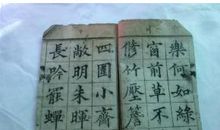 樂何如綠
窗前草不
修竹壓簷
四圍小齋
敞明朱暉
長吟罷蟬